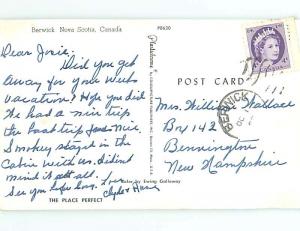 Berwick Nova Scotia, Canada
P8630
Dear Josie,
Did you get
away for your week
vacation? Hope you did
Had a nice trip
the boat trip nice
Smokey stayed in the
Cabin with us. didn't
mind it at all.
See you before long. Love
Clyde &
Plastichrome
POST CARD
BERWICK
Mrs. William Wallace
Box 142
Bennington
New Hampshire
Color by Ewing Galloway
THE PLACE PERFECT